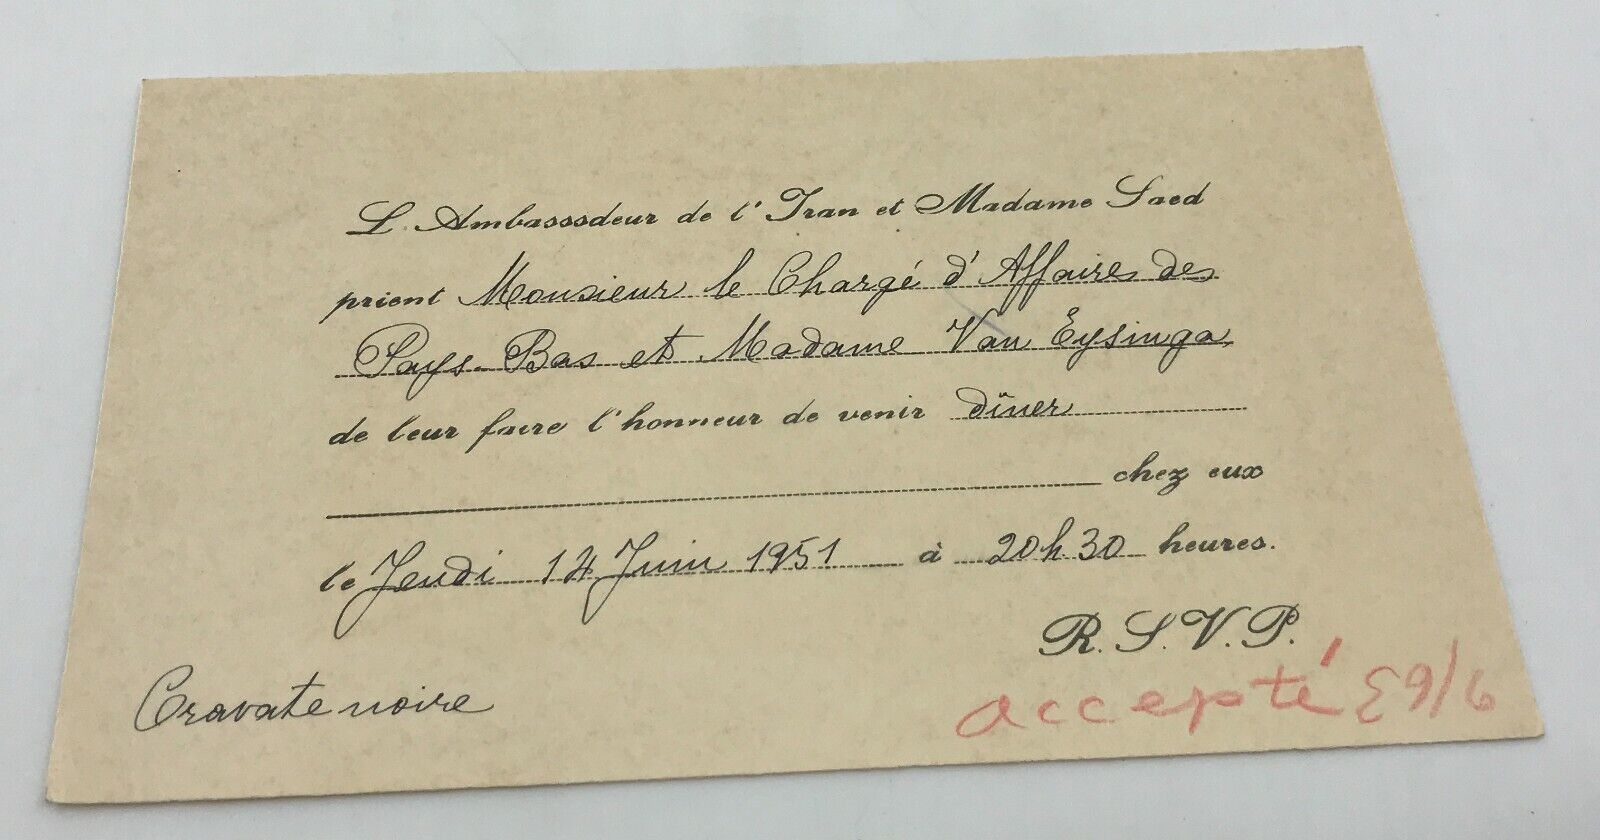 L. Ambasssdeur de l' Iran et Madame Saed
prient Monsieur le Chargé d'Affaires des
Pays-Bas et Madame Van Eysinga
de leur faire l'honneur de venir dîner
chez eux
le Jeudi 14 Juin 1951 à 20h.30 heures.
R.S.V.P.
Cravate noire
accepté 9/6